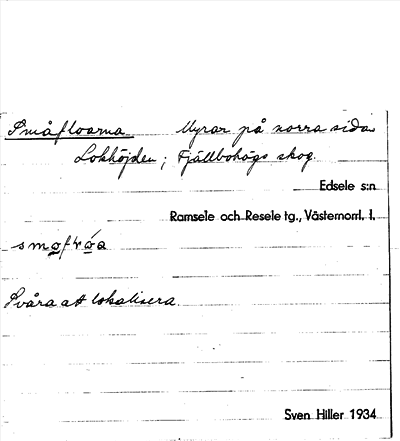 Småfloarna Myrar på norra sidan
Lokhöjden; Fjällbohögs skog.
Edsele s:n
Ramsele och Resele tg., Västernorrl. l.
Svåra att lokalisera.
Sven Hiller 1934